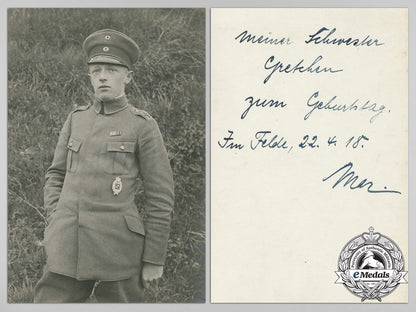 meiner Schwester
Gretchen
zum Geburtstag.
Im Felde, 22. 4. 18.
Max.
eMedals